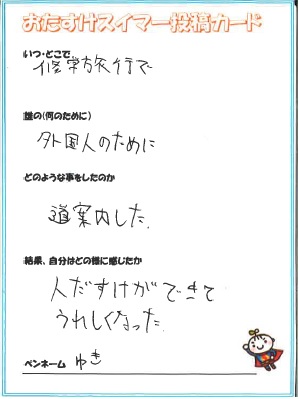 おたすけスイマー投稿カード
いつ・どこで
修学旅行で
誰の(何のために)
外国人のために
どのような事をしたのか
道案内した.
結果、自分はどの様に感じたか
人だすけができて
うれしくなった.
ペンネーム ゆき